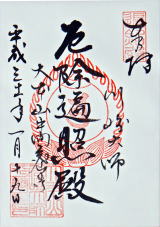 奉拝
川崎大師
厄除遍照殿
大本山平間寺
平成三十一年一月十九日